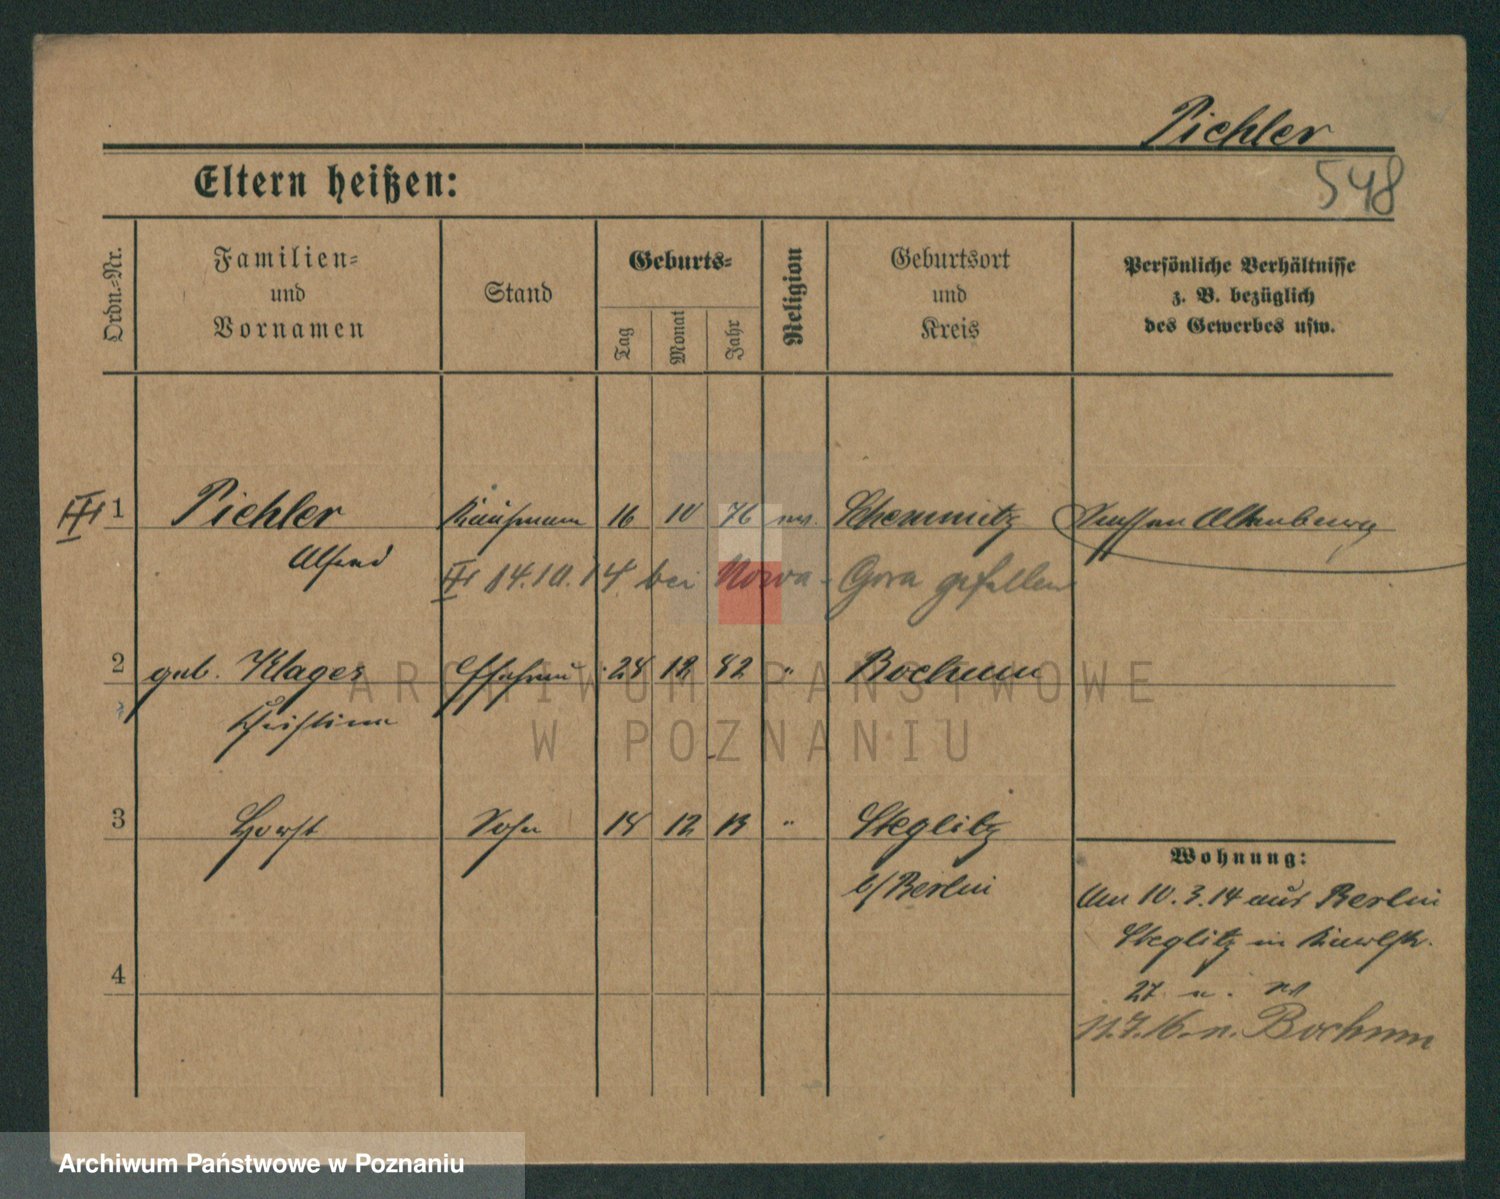 Pichler
548
Eltern heißen:
Ordn.-Nr.
Familien-
und
Vornamen
Stand
Geburts-
Tag
Monat
Jahr
Religion
Geburtsort
und
Kreis
Persönliche Verhältnisse
z. B. bezüglich
des Gewerbes usw.
1 Pichler Kaufmann 16 10 76 ev. Chemnitz Sachsen Altenburg
Alfred
14.10.14 bei Nowa-Gora gefallen
2 geb. Klages Ehefrau 28 12 82 " Bochum
Christine
3 Horst Sohn 18 12 13 " Steglitz
b/Berlin
4
Wohnung:
Am 10.3.14 aus Berlin
Steglitz in
27
11.7.16. n. Bochum
ARCHIWUM PAŃSTWOWE
W POZNANIU
Archiwum Państwowe w Poznaniu